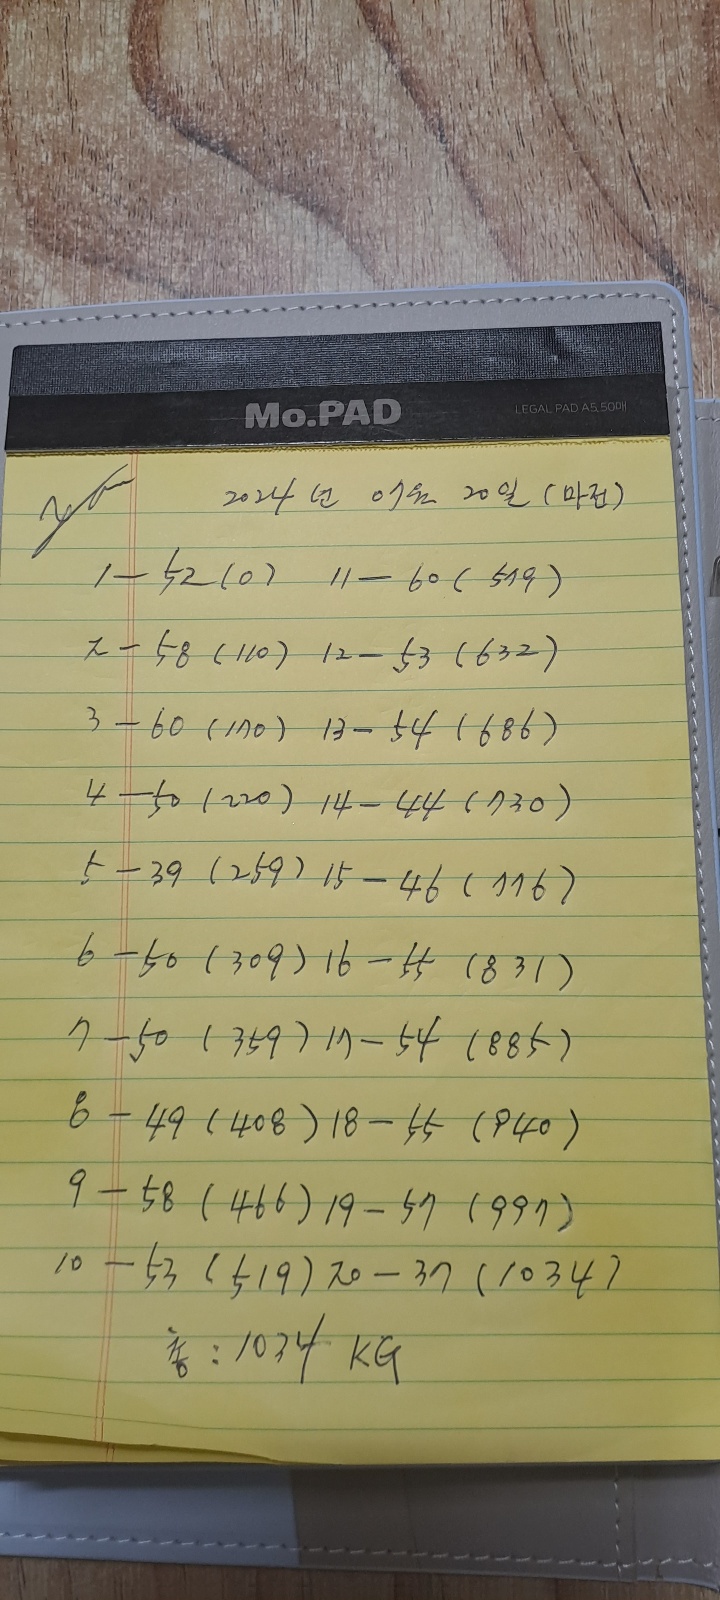 Mo.PAD LEGAL PAD A5.50매
2024년 07월 20일 (마전)
1 - 52 (0) 11 - 60 (579)
2 - 58 (110) 12 - 53 (632)
3 - 60 (170) 13 - 54 (686)
4 - 50 (220) 14 - 44 (730)
5 - 39 (259) 15 - 46 (776)
6 - 50 (309) 16 - 55 (831)
7 - 50 (359) 17 - 54 (885)
8 - 49 (408) 18 - 55 (940)
9 - 58 (466) 19 - 57 (997)
10 - 53 (519) 20 - 37 (1034)
총 : 1034 KG